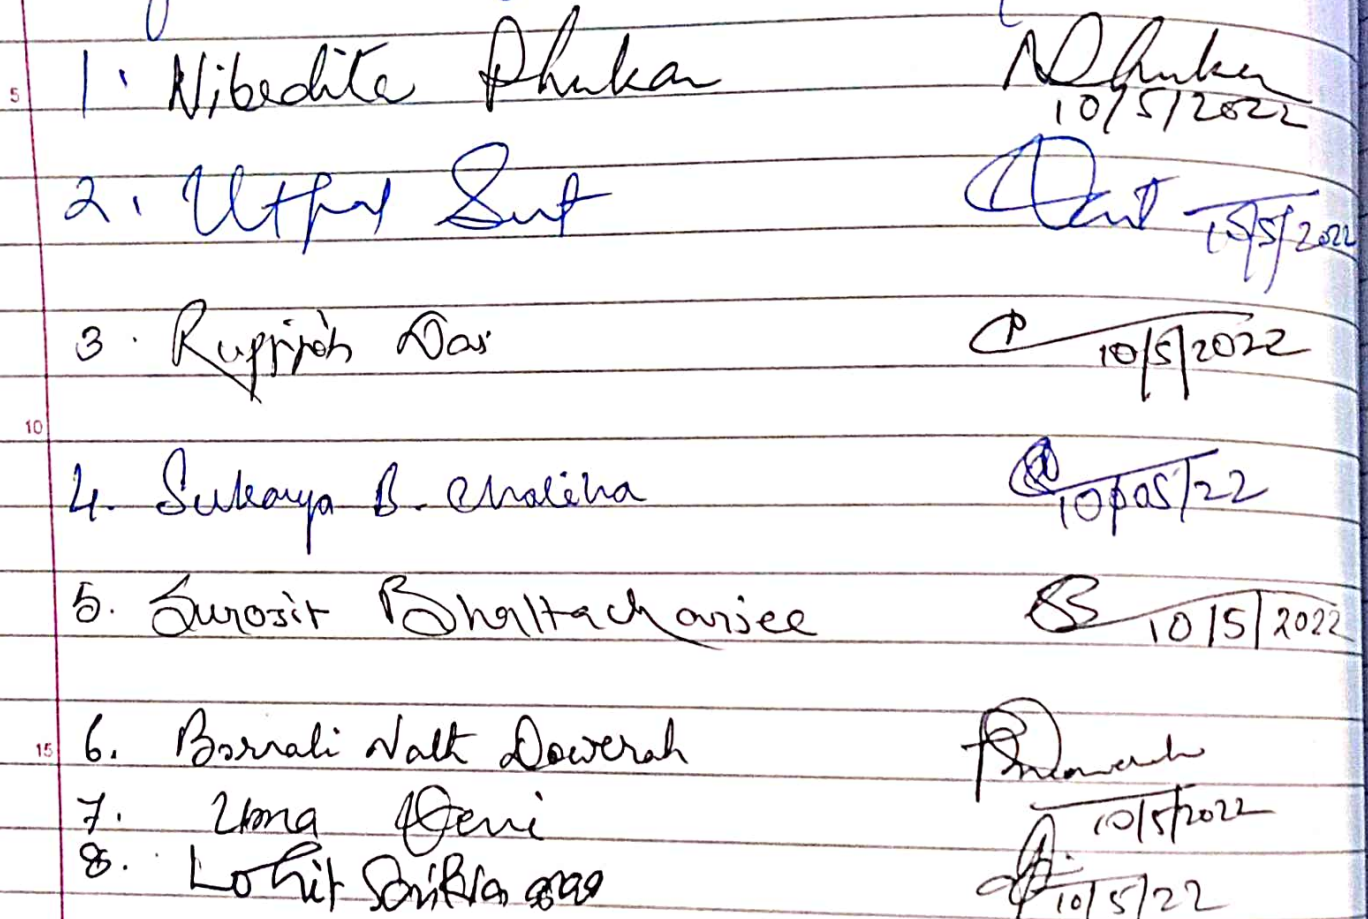 5
1. Nibedita Phukan NPhukan
10/5/2022
2. Utpal Sut 10/5/2022
3. Das 10/5/2022
10
4. Sukanya B. Chaliha
10/05/22
5. Surosit Bhattacharjee SB 10/5/2022
15 6. Bornali Nath Dowerah
7. Uma Devi 10/5/2022
8. Lohit 10/5/22